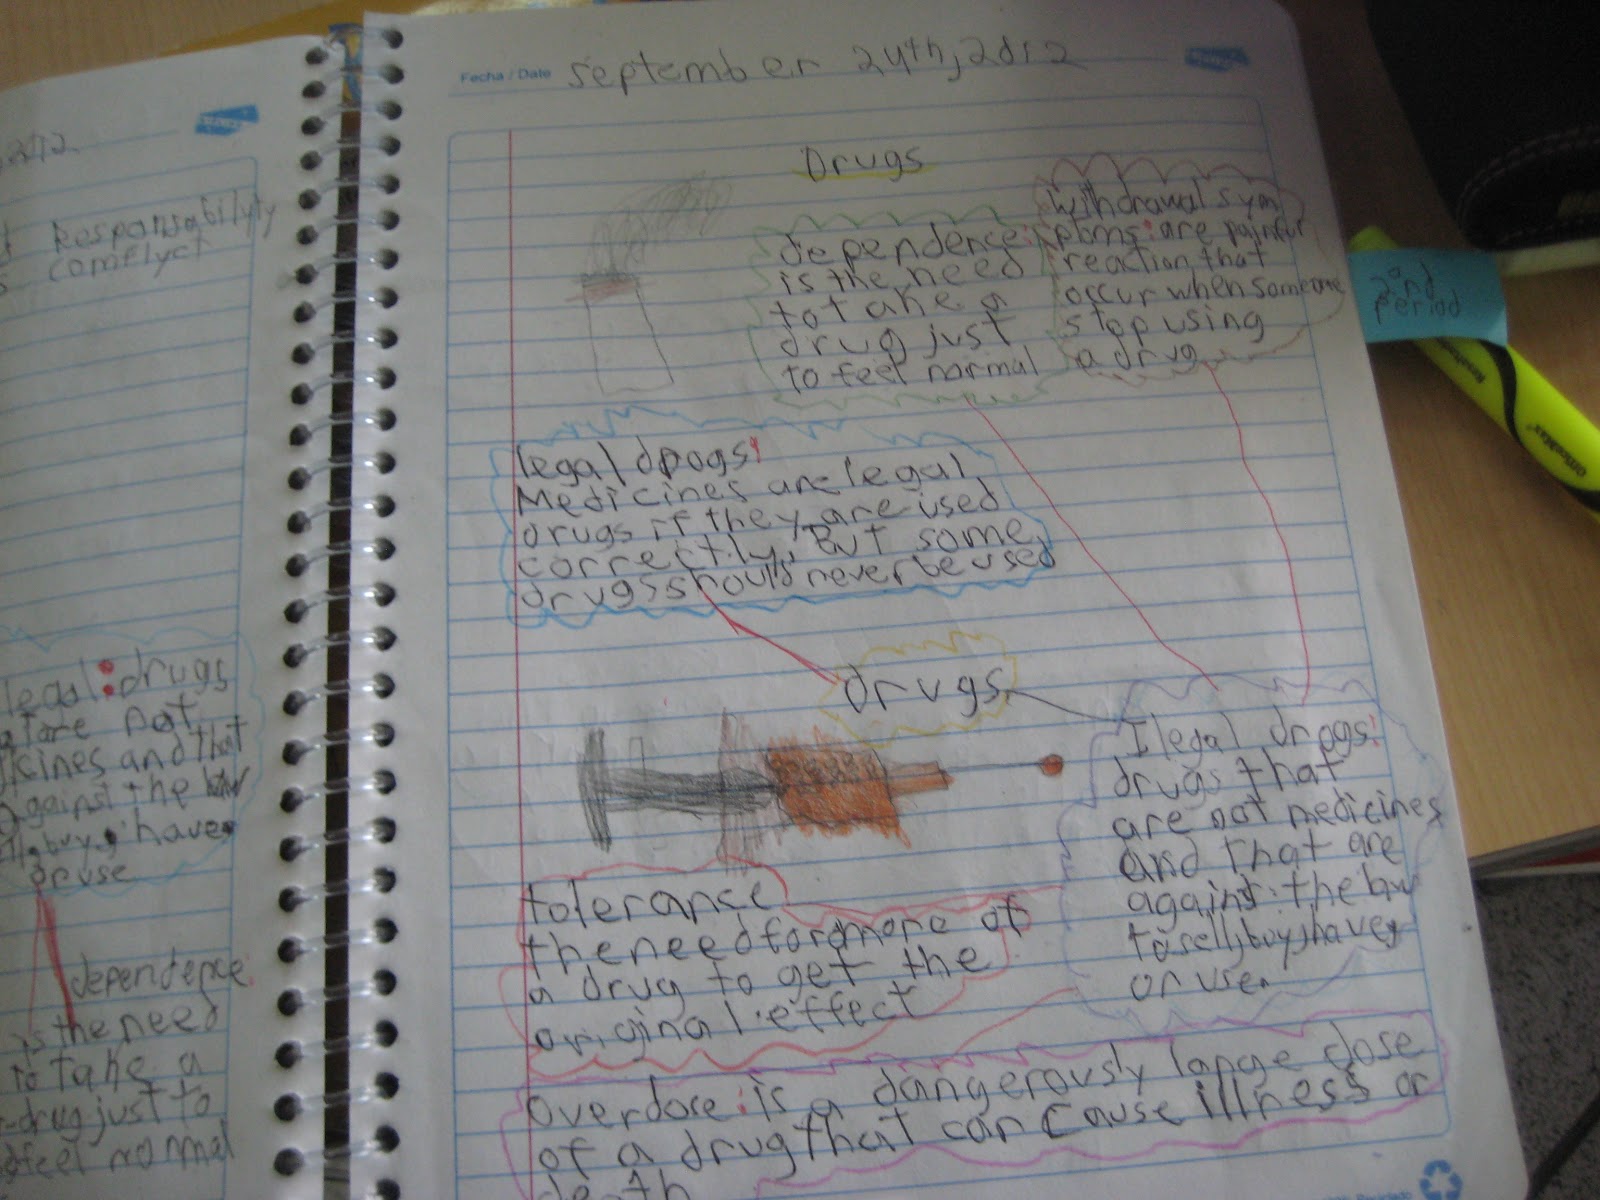 2012
Responsability
comflyct
legal: drugs
are not
icines and that
against the law
buy, have
or use
dependence:
is the need
to take a
drug just to
feel normal
Fecha / Date september 24th, 2012
Drugs
dependence:
is the need
to take a
drug just
to feel normal
Withdrawal sym
ptoms: are painfur
reaction that
occur when someone
stop using
a drug
2nd
period
OfficeMax
legal drogs:
Medicines are legal
drugs if they are used
correctily, But some
drugs should never be used
drugs
Ilegal drogs:
drugs that
are not medicines
and that are
against the law
to sell, buy, have,
or use.
tolerance
the need for more of
a drug to get the
original effect
overdose: is a dangerously large dose
of a drug that can cause illness or
death